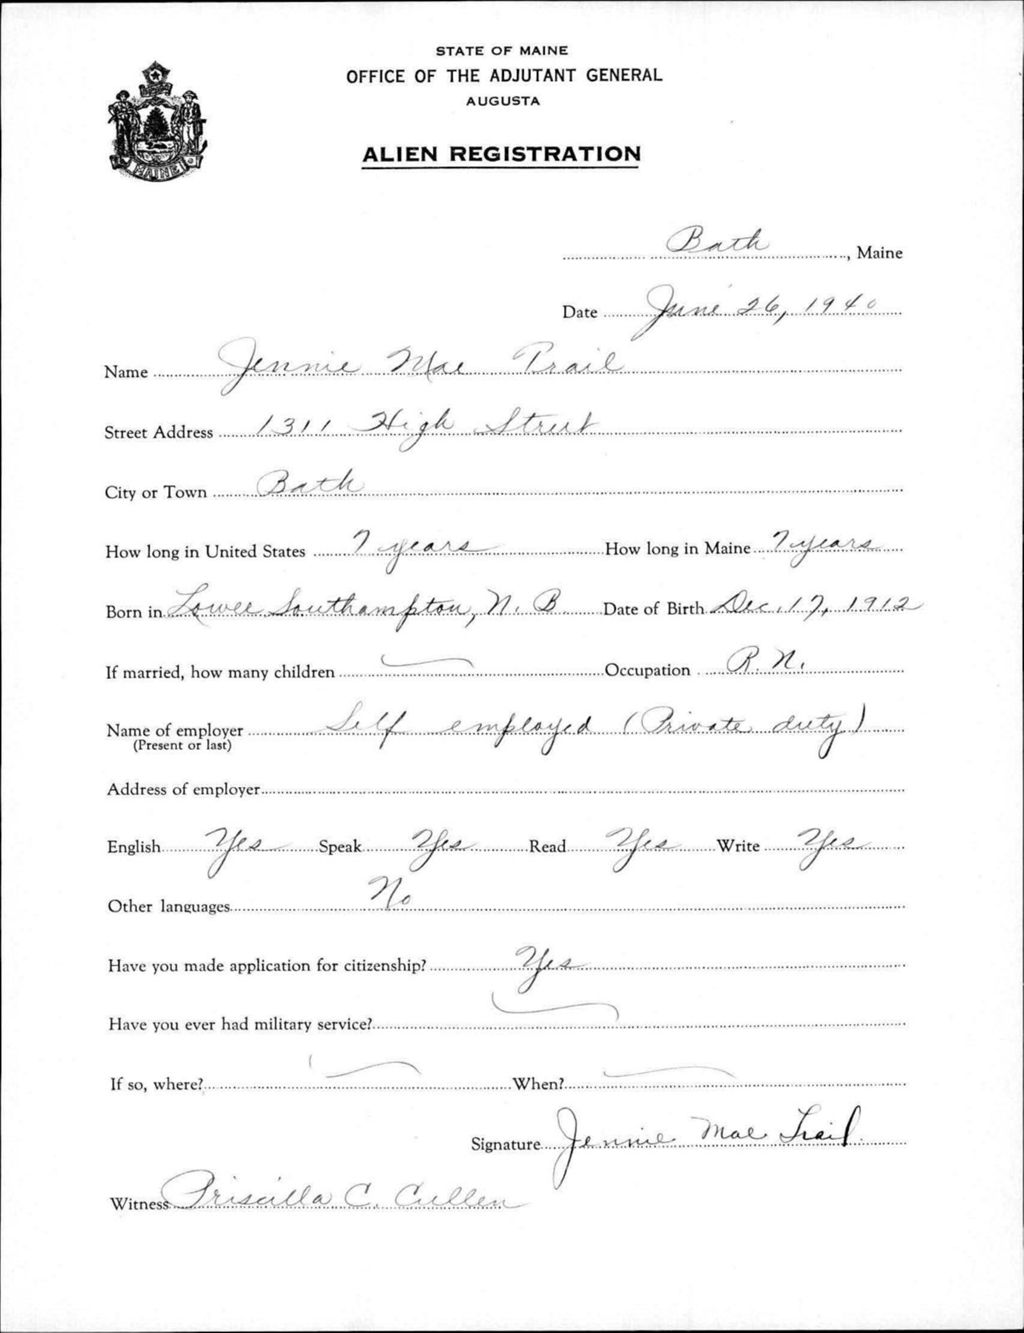 STATE OF MAINE
OFFICE OF THE ADJUTANT GENERAL
AUGUSTA
ALIEN REGISTRATION
MAINE
Bath, Maine
Date June 26, 1940
Name Jennie Mae Trail
Street Address 1311 High Street
City or Town Bath
How long in United States 7 years How long in Maine 7 years
Born in Lower Southampton, N. B Date of Birth Dec. 17, 1912
If married, how many children Occupation R. N.
Name of employer Self employed (Private duty)
(Present or last)
Address of employer
English Yes Speak Yes Read Yes Write Yes
Other languages No
Have you made application for citizenship? Yes
Have you ever had military service?
If so, where? When?
Signature Jennie Mae Trail
Witness Priscilla C. Cullen